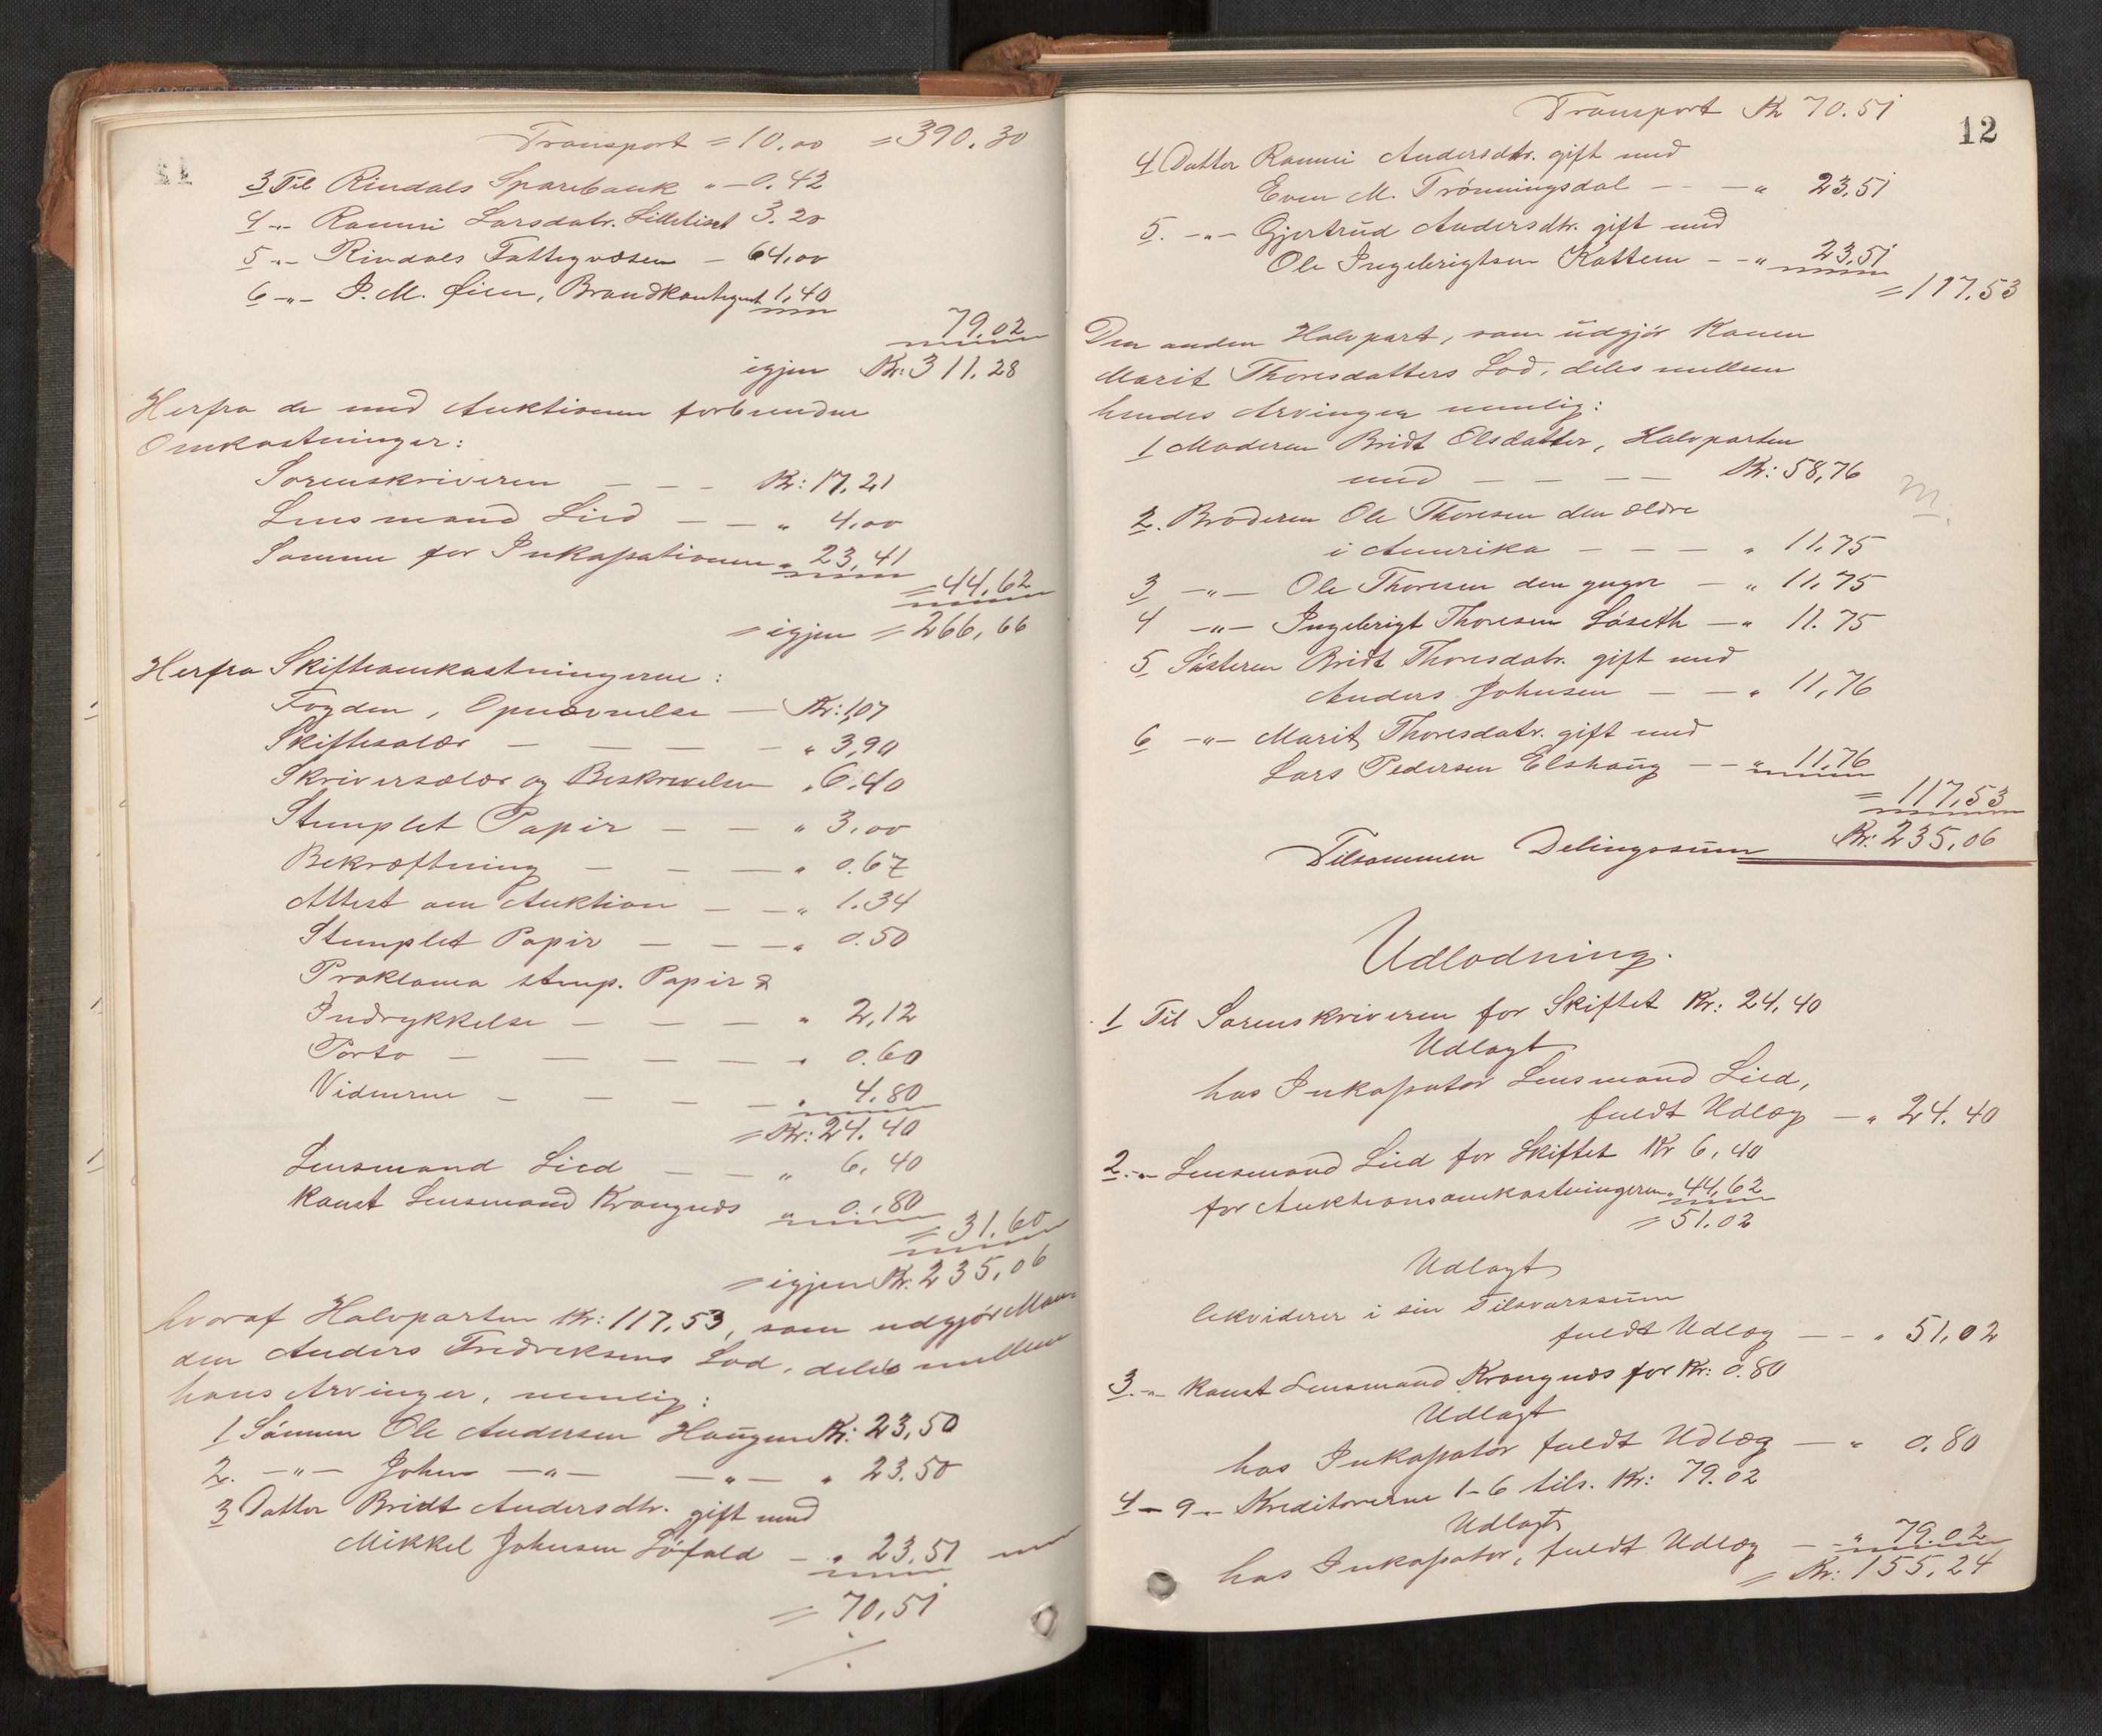 Transport = 10,00 = 390,30
3 Til Rindals Sparebank " — 0.42
4 -"- Ranni Larsdatr. Lillelisct 3.20
5 -"- Rindals Fattigvæsen — 64,00
6 -"- I. M. Øien, Brandkontigent 1,40
79,02
igjen Kr: 311.28
Herfra de med Auktionen forbundne
Omkostninger:
Sorenskriveren — — — Kr: 17,21
Lensmand Lied — — " 4,00
Samme for Inkassationen " 23,41
= 44,62
= igjen = 266,66
Herfra Skifteomkostningerne:
Fogden, Opnævnelse — Kr: 1,07
Skiftesalær — — — — " 3,90
Skriversalær og Beskrivelsen " 6.40
Stemplet Papir — — " 3,00
Bekræftning — — — " 0.67
Attest om Auktion — — " 1.34
Stemplet Papir — — — " 0.50
Proklama stmp. Papir &
Indrykkelse — — — " 2,12
Porto — — — — " 0.60
Vidnerne — — — — " 4.80
= Kr: 24.40
Lensmand Lied — — " 6,40
Konst Lensmand Krangnæs " 0,80
= 31,60
= igjen Kr: 235,06
hvoraf Halvparten Kr: 117,53, som udgjør Man-
den Anders Fredriksens Lod, deles mellem
hans Arvinger, nemlig:
1 Sønnen Ole Andersen Haugen Kr: 23,50
2. -"- John -"- -"- " 23.50
3 Datter Bridt Andersdtr. gift med
Mikkel Johnsen Løfald — " 23.51
= 70,51
./.
Transport Kr 70.51
12
4 Datter Ranni Andersdtr. gift med
Even M. Trønningsdal — — — " 23,51
5. -"- Gjertrud Andersdtr. gift med
Ole Ingebrigtsen Kattem — — " 23,51
= 117,53
Den anden Halvpart, som udgjør Konen
Marit Thoresdatters Lod, deles mellem
hendes Arvinger nemlig:
1 Moderen Bridt Olsdatter, Halvparten
med — — — — Kr: 58,76
2. Broderen Ole Thoresen den ældre
i Amerika — — — " 11,75
3 -"- Ole Thoresen den yngre — " 11,75
4 -"- Ingebrigt Thoresen Løseth — " 11.75
5 Søsteren Bridt Thoresdatr. gift med
Anders Johnsen — — " 11,76
6 -"- Marit Thoresdatr. gift med
Lars Pedersen Elshaug — — " 11,76
= 117,53
Tilsammen Delingssum Kr: 235,06
Udlodning.
1 Til Sorenskriveren for Skiftet Kr: 24,40
Udlagt
hos Inkassator Lensmand Lied,
fuldt Udlæg — " 24.40
2. -"- Lensmand Lied for Skiftet Kr 6,40
for Auktionsomkostningerne " 44,62
= 51.02
Udlagt
likviderer i sin Tilsvarssum
fuldt Udlæg — — " 51,02
3. -"- Konst Lensmand Krangnæs for Kr: 0.80
Udlagt
hos Inkassator fuldt Udlæg — " 0,80
4 — 9 -"- Kreditorerne 1-6 tils. Kr: 79.02
Udlagt
hos Inkassator, fuldt Udlæg — " 79.02
= Kr: 155,24